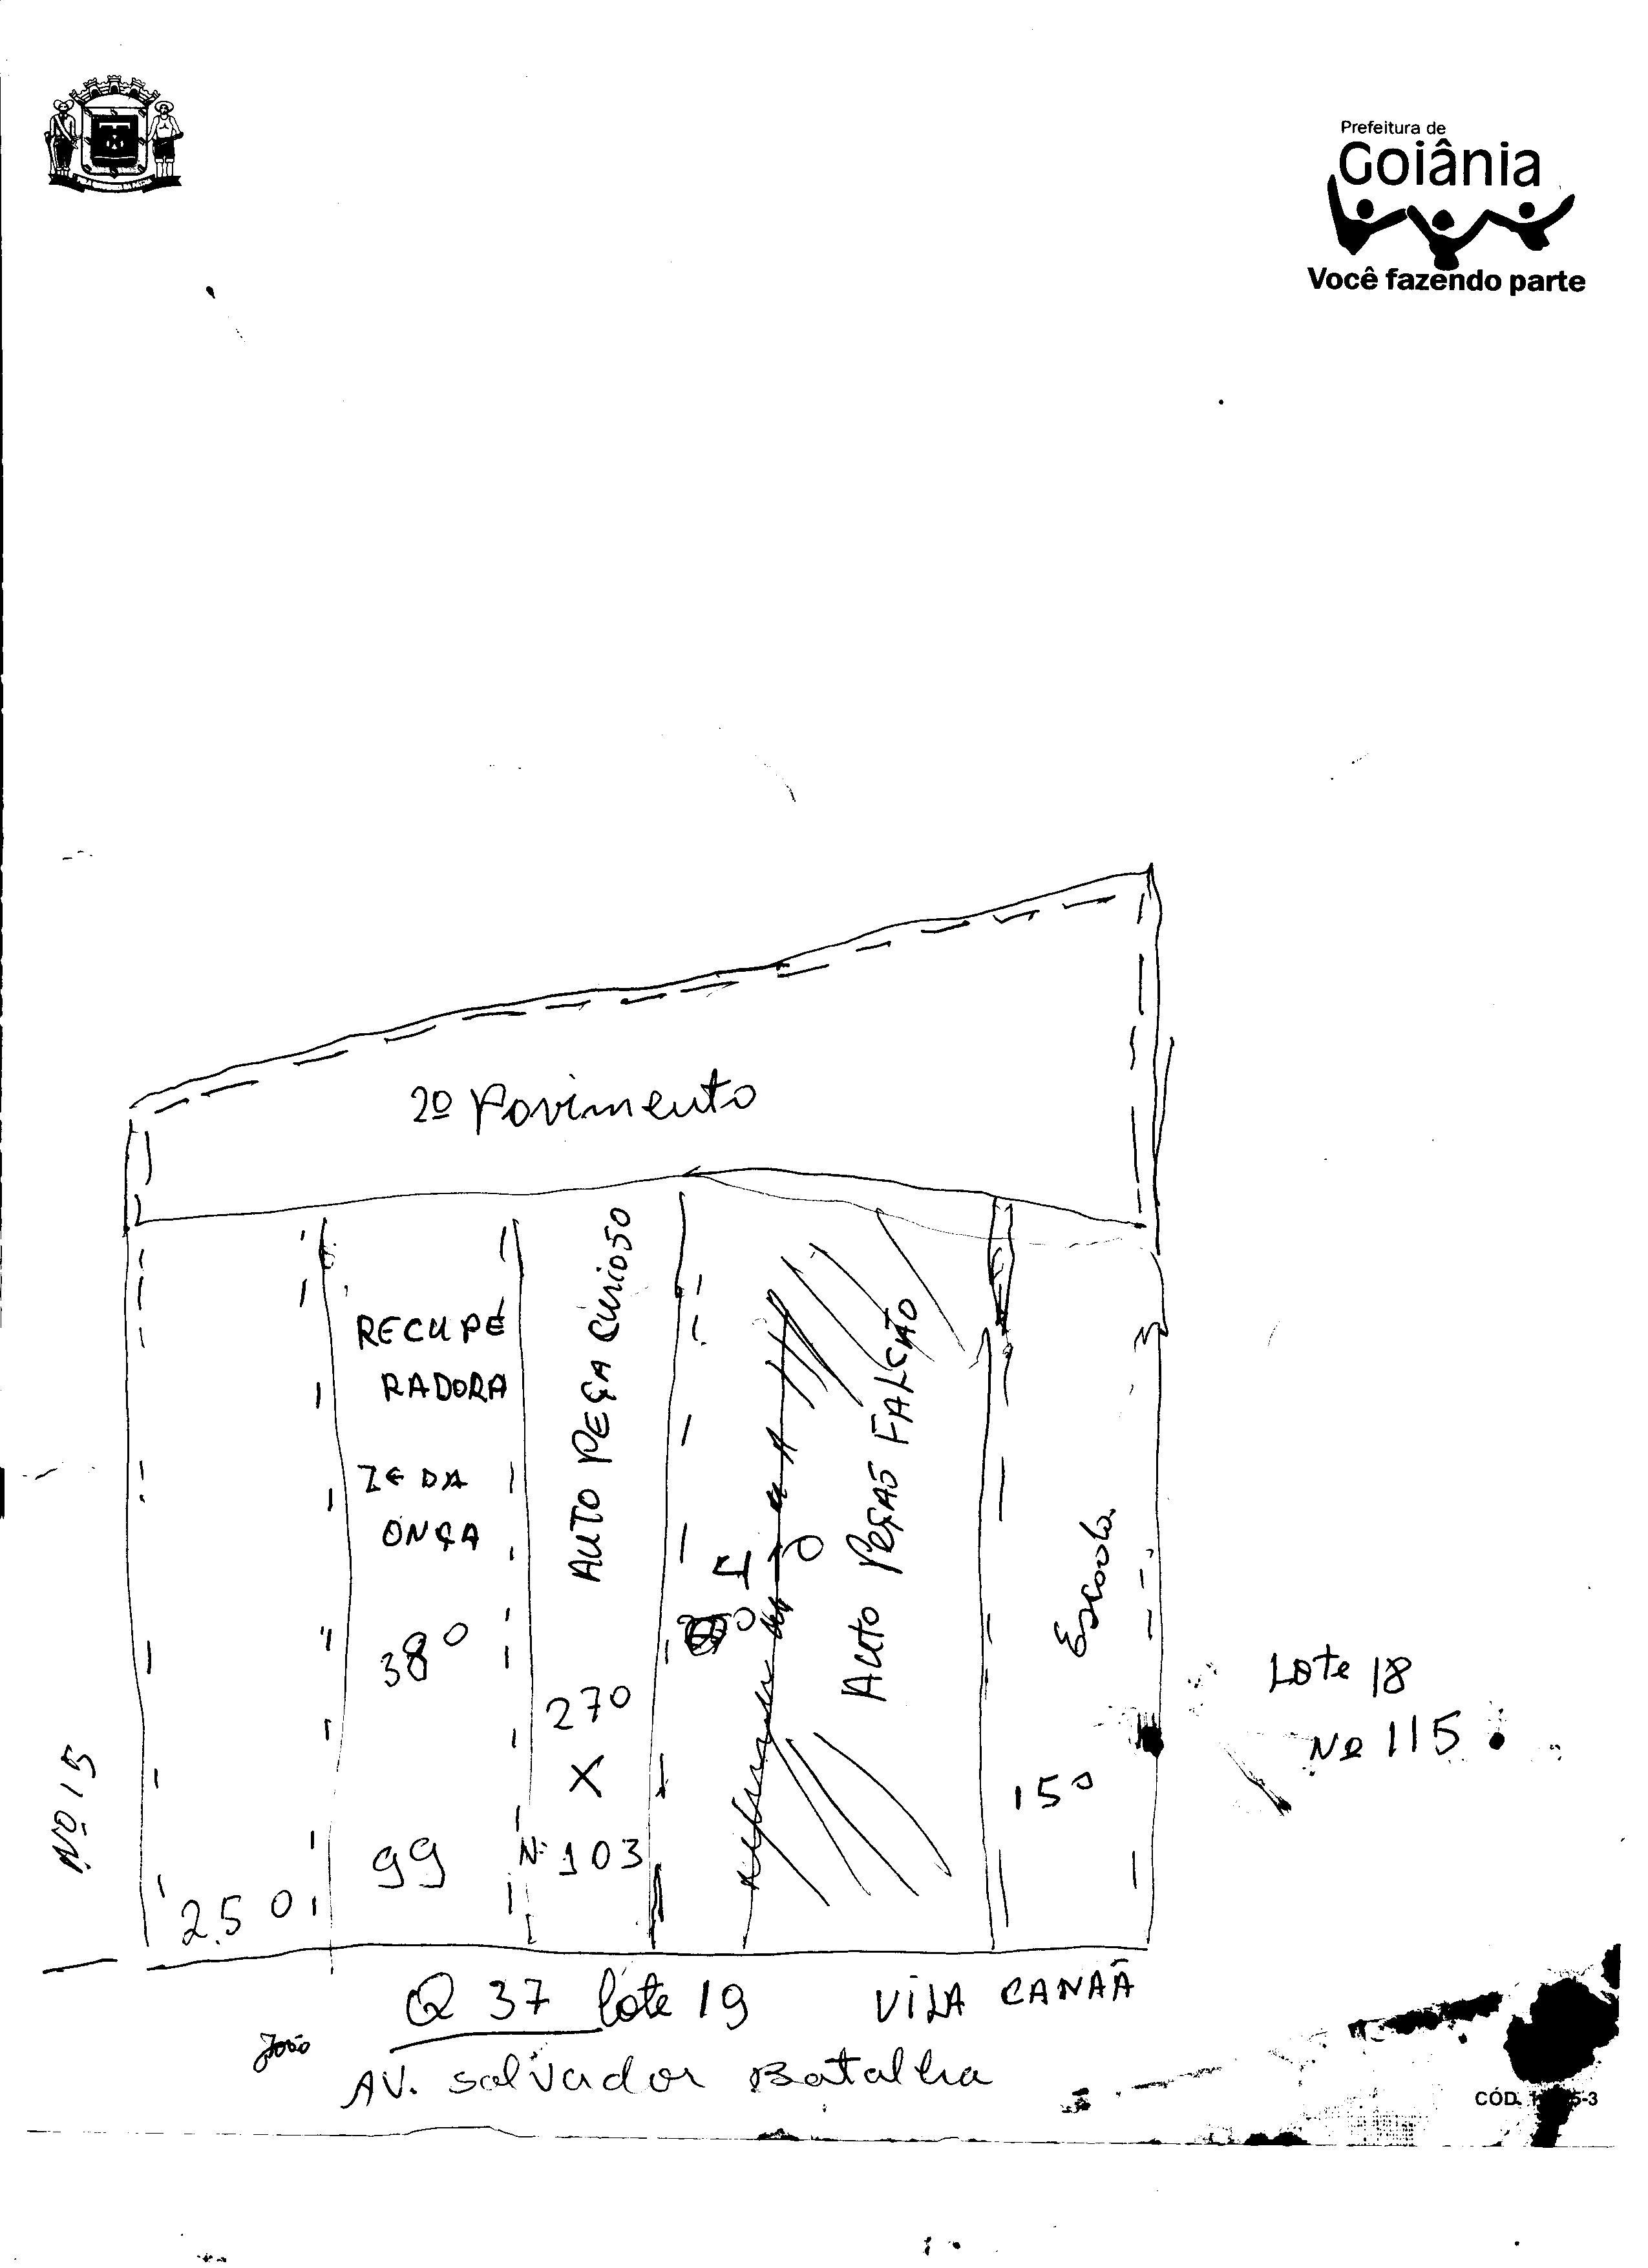 Prefeitura de
Goiânia
Você fazendo parte
2º Pavimento
RECUPE
RADORA
ZE DA
ONÇA
380
99
AUTO PEÇA CURIOSO
270
X
Nº 103
AUTO PEÇAS FALCÃO
Escola
150
Lote 18
Nº 115
Nº 15
250
Q 37 lote 19 VILA CANAÃ
João
AV. Salvador Batalha
CÓD.